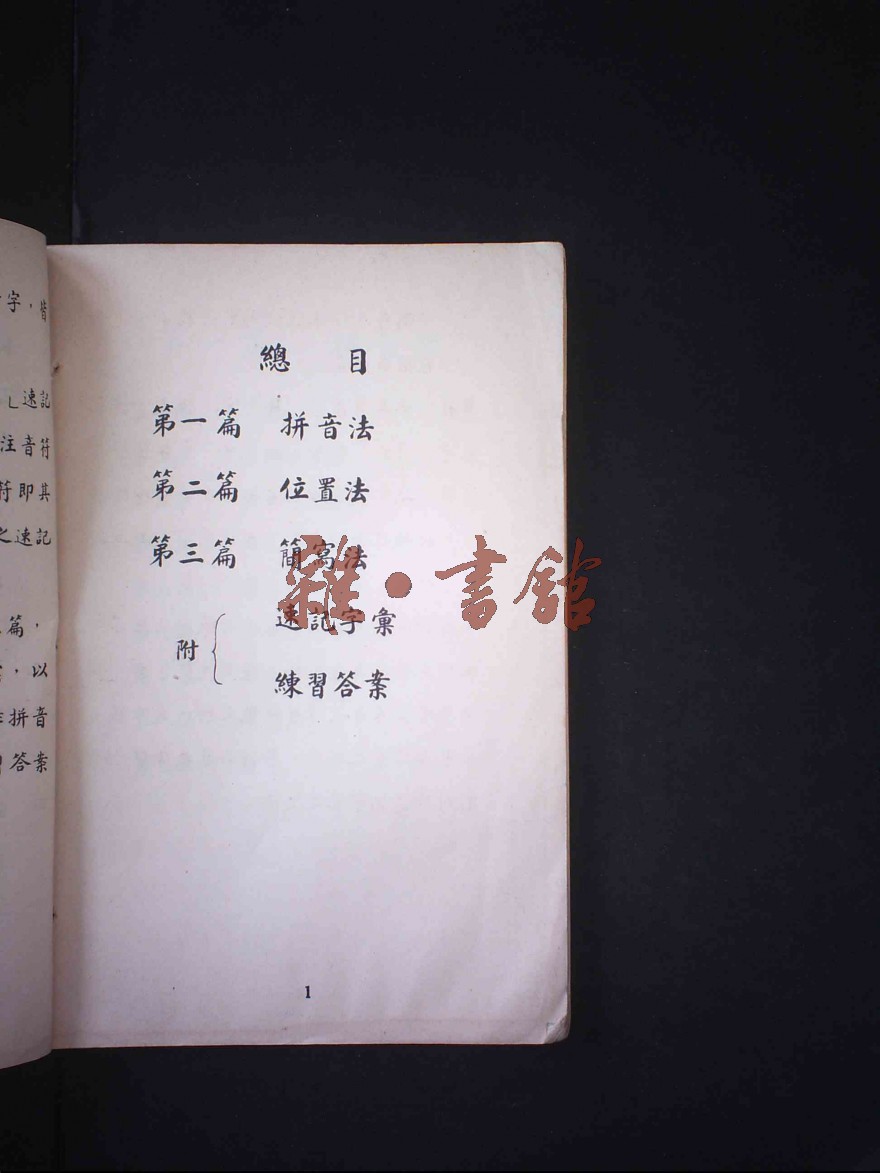 字，皆
」速記
注音符
符即其
之速記
篇，
，以
拼音
答案
總目
第一篇 拼音法
第二篇 位置法
第三篇 簡寫法
附
速記字彙
練習答案
1
雜·書館